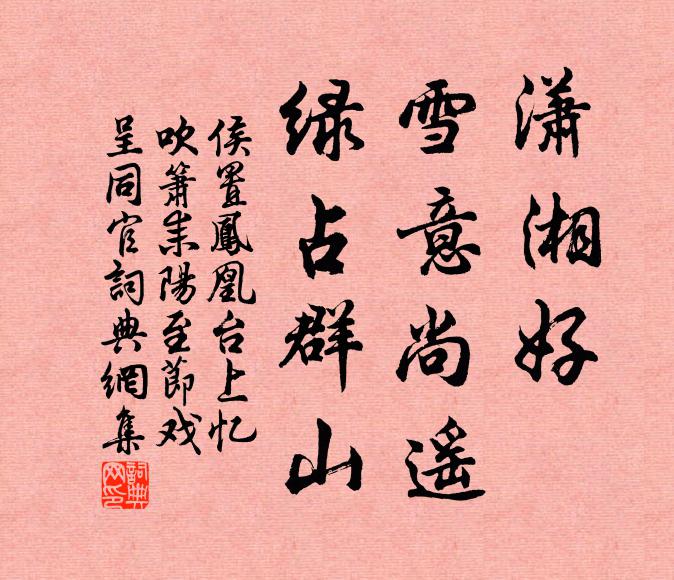 潇湘好
雪意尚遥
绿占群山
侯置鳳凰台上忆
吹箫耒陽至節戏
呈同官詞典網集
詞典网印